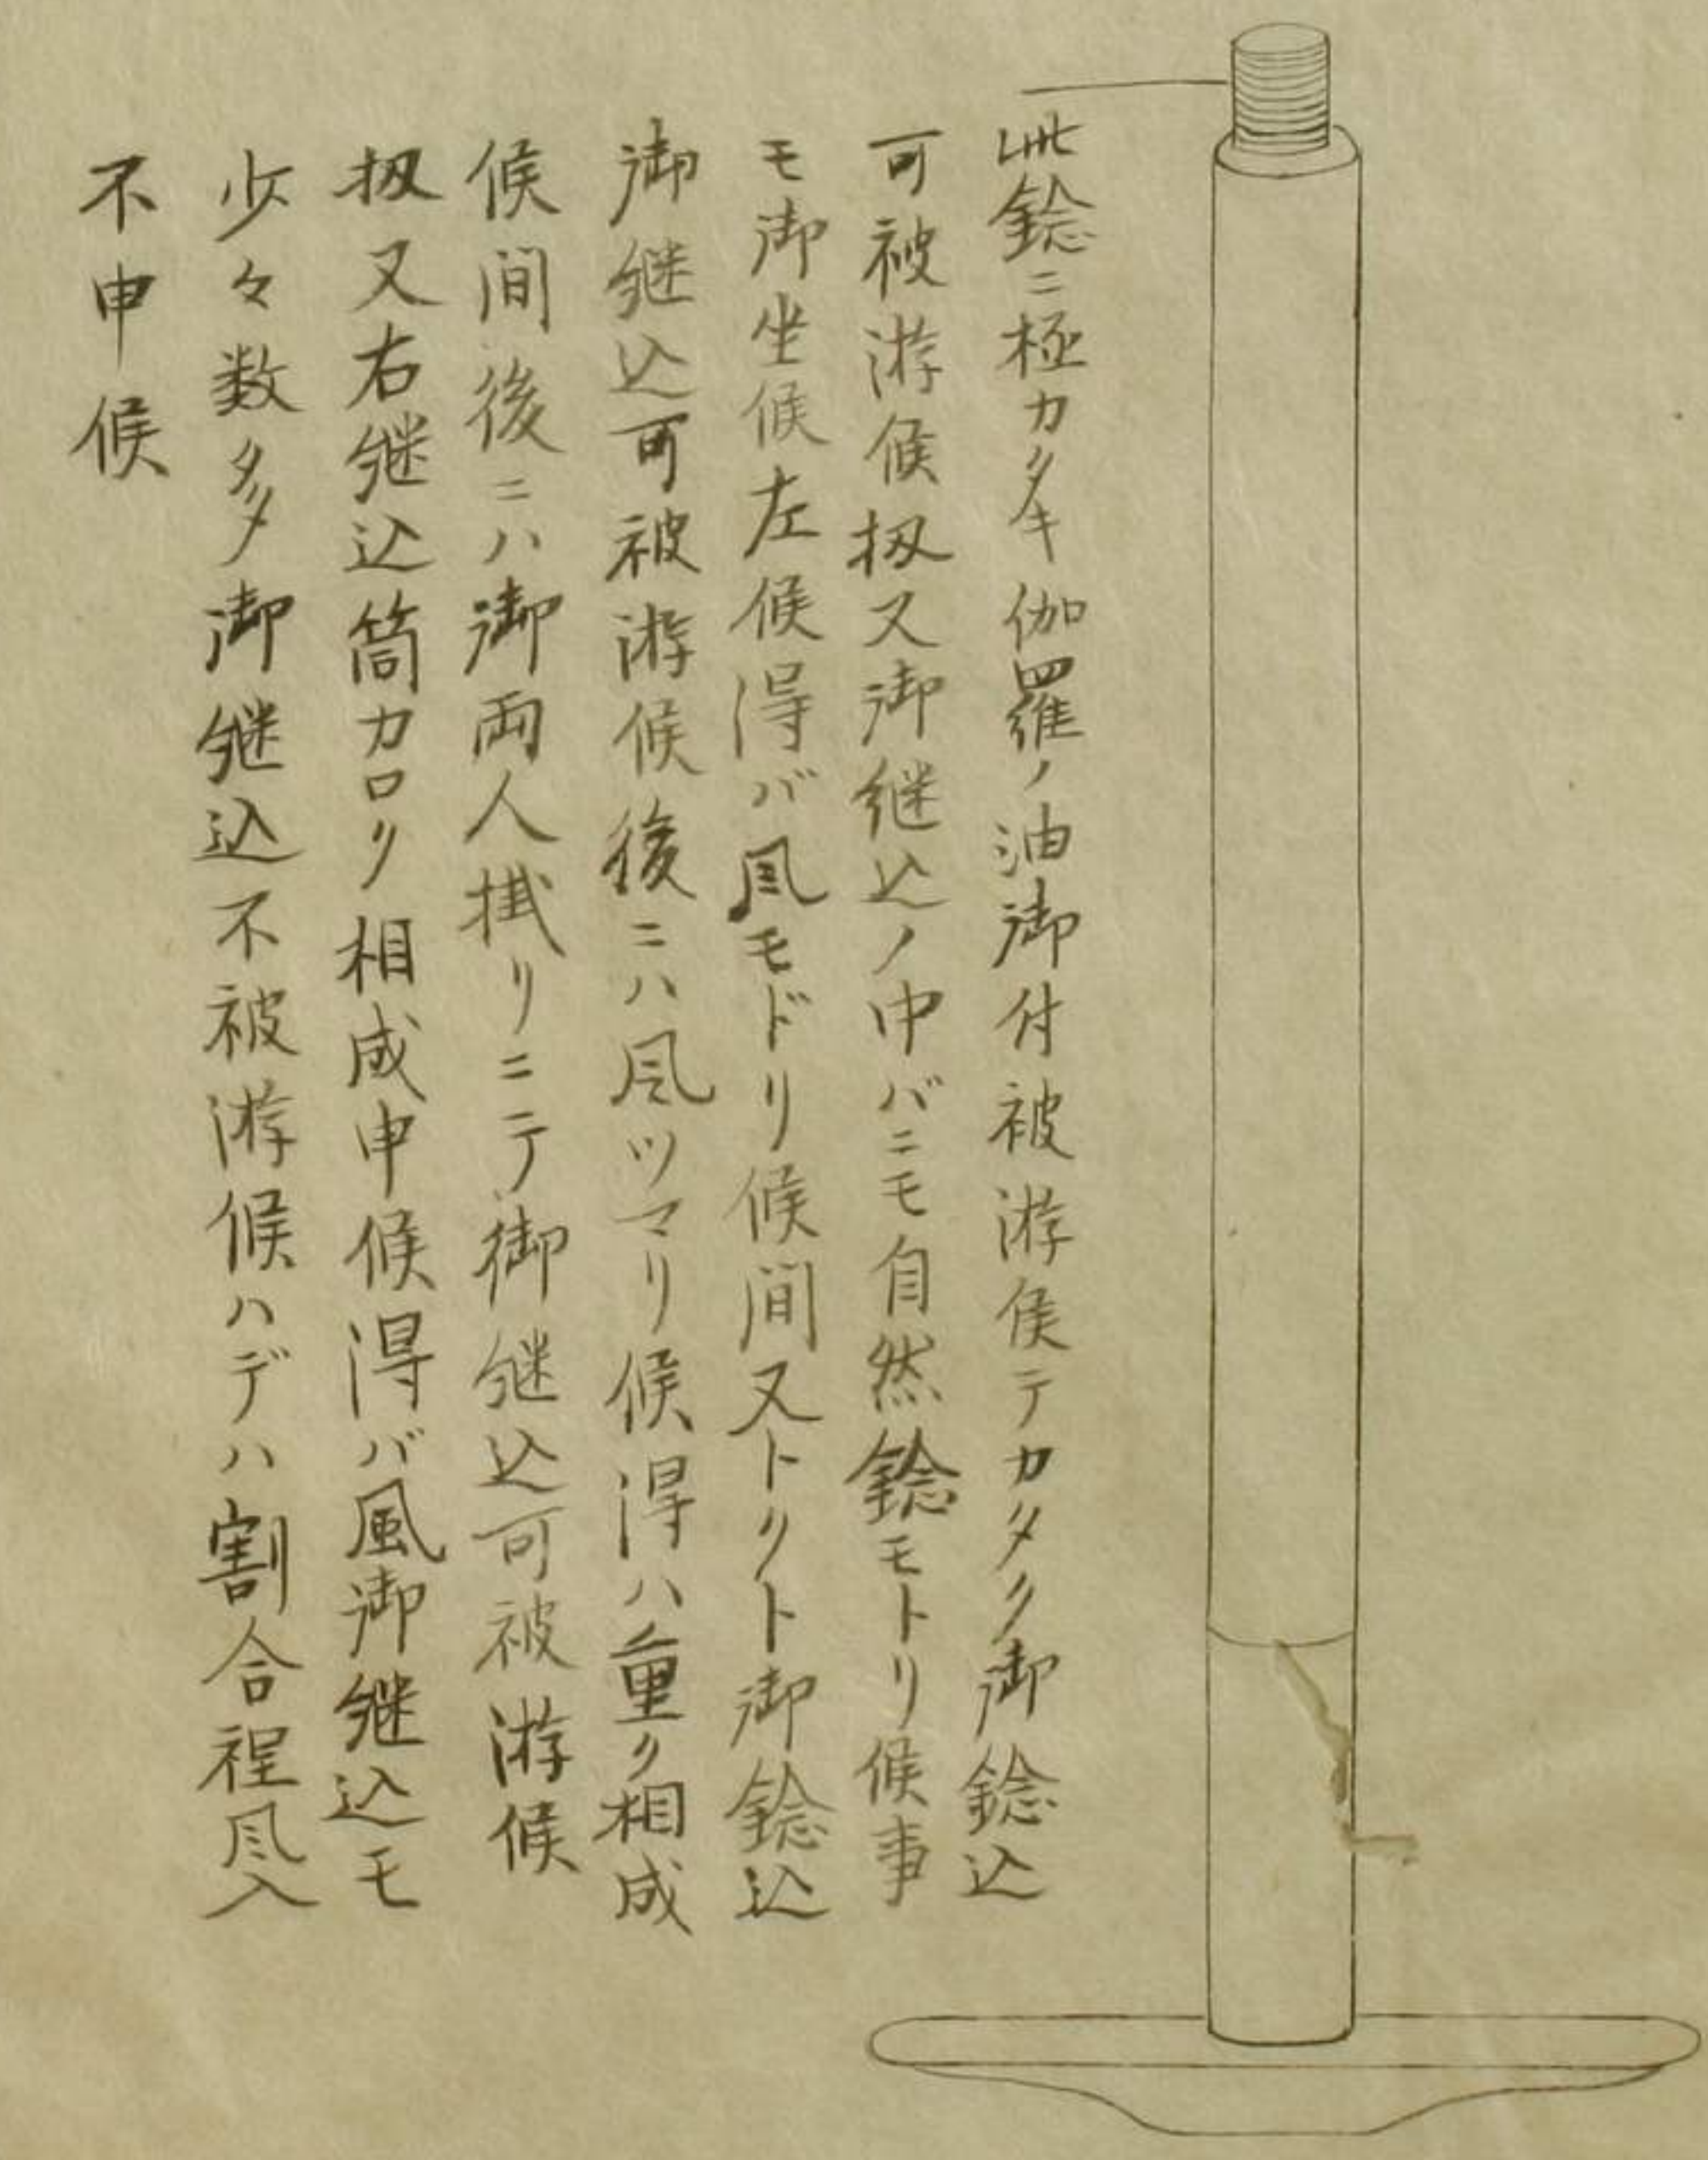 此鋴ニ極カタキ伽羅ノ油御付被游候テカタク御鋴込
可被游候扨又御継込ノ中バニモ自然鋴モトリ候事
モ御坐候左候得バ風モドリ候間又トクト御鋴込
御継込可被游候後ニハ風ツマリ候得ハ重ク相成
候間後ニハ御両人掛リニテ御継込可被游候
扨又右継込筒カロク相成申候得バ風御継込モ
少々数多ク御継込不被游候ハデハ割合程風入
不申候